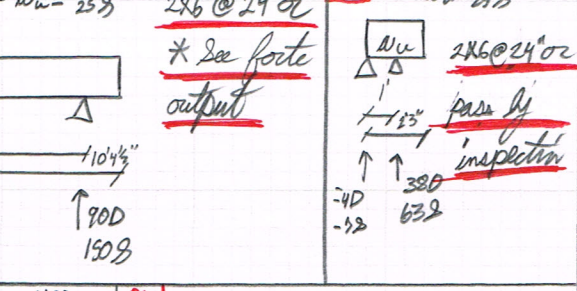 Wu = 25S
2x6 @ 24" oc
* See forte
output
10'4½"
90D
150S
Wu
2x6 @ 24" oc
pass by
inspection
1'
1'3"
-4D
-5S
38D
63S